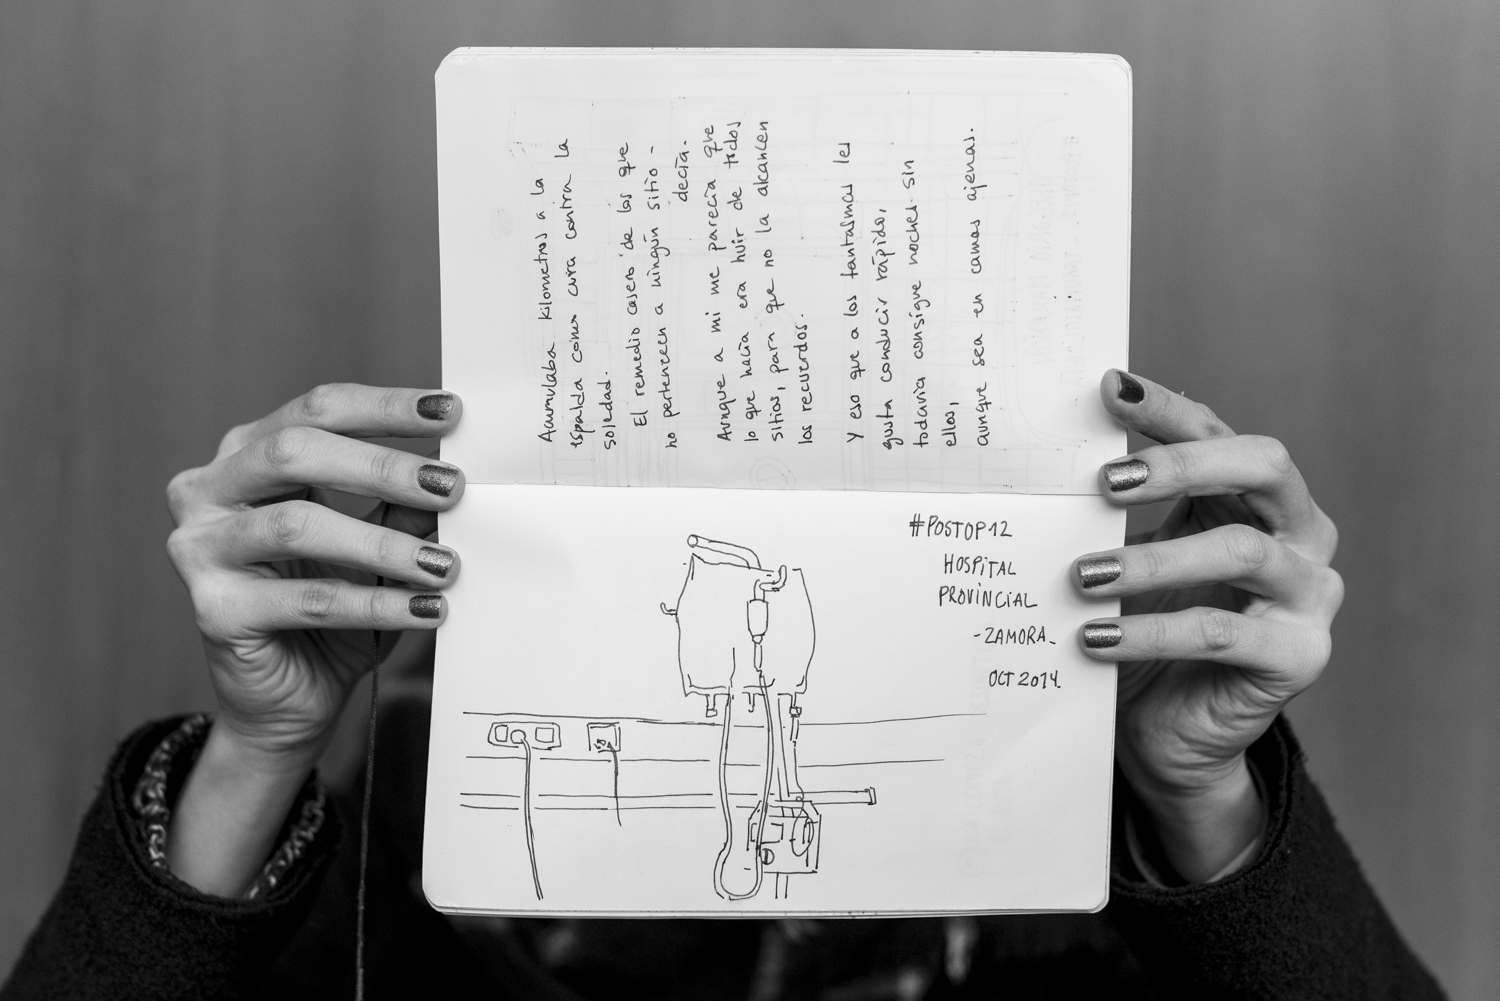 Acumulaba kilometros a la
espalda como cura contra la
soledad.
El remedio casero de los que
no pertenecen a ningún sitio -
decía.
Aunque a mi me parecía que
lo que hacía era huir de todos
sitios, para que no la alcancen
los recuerdos.
Y eso que a los fantasmas les
gusta conducir rápido,
todavía consigue noches sin
ellos,
aunque sea en camas ajenas.
#POSTOP12
HOSPITAL
PROVINCIAL
-ZAMORA-
OCT 2014.